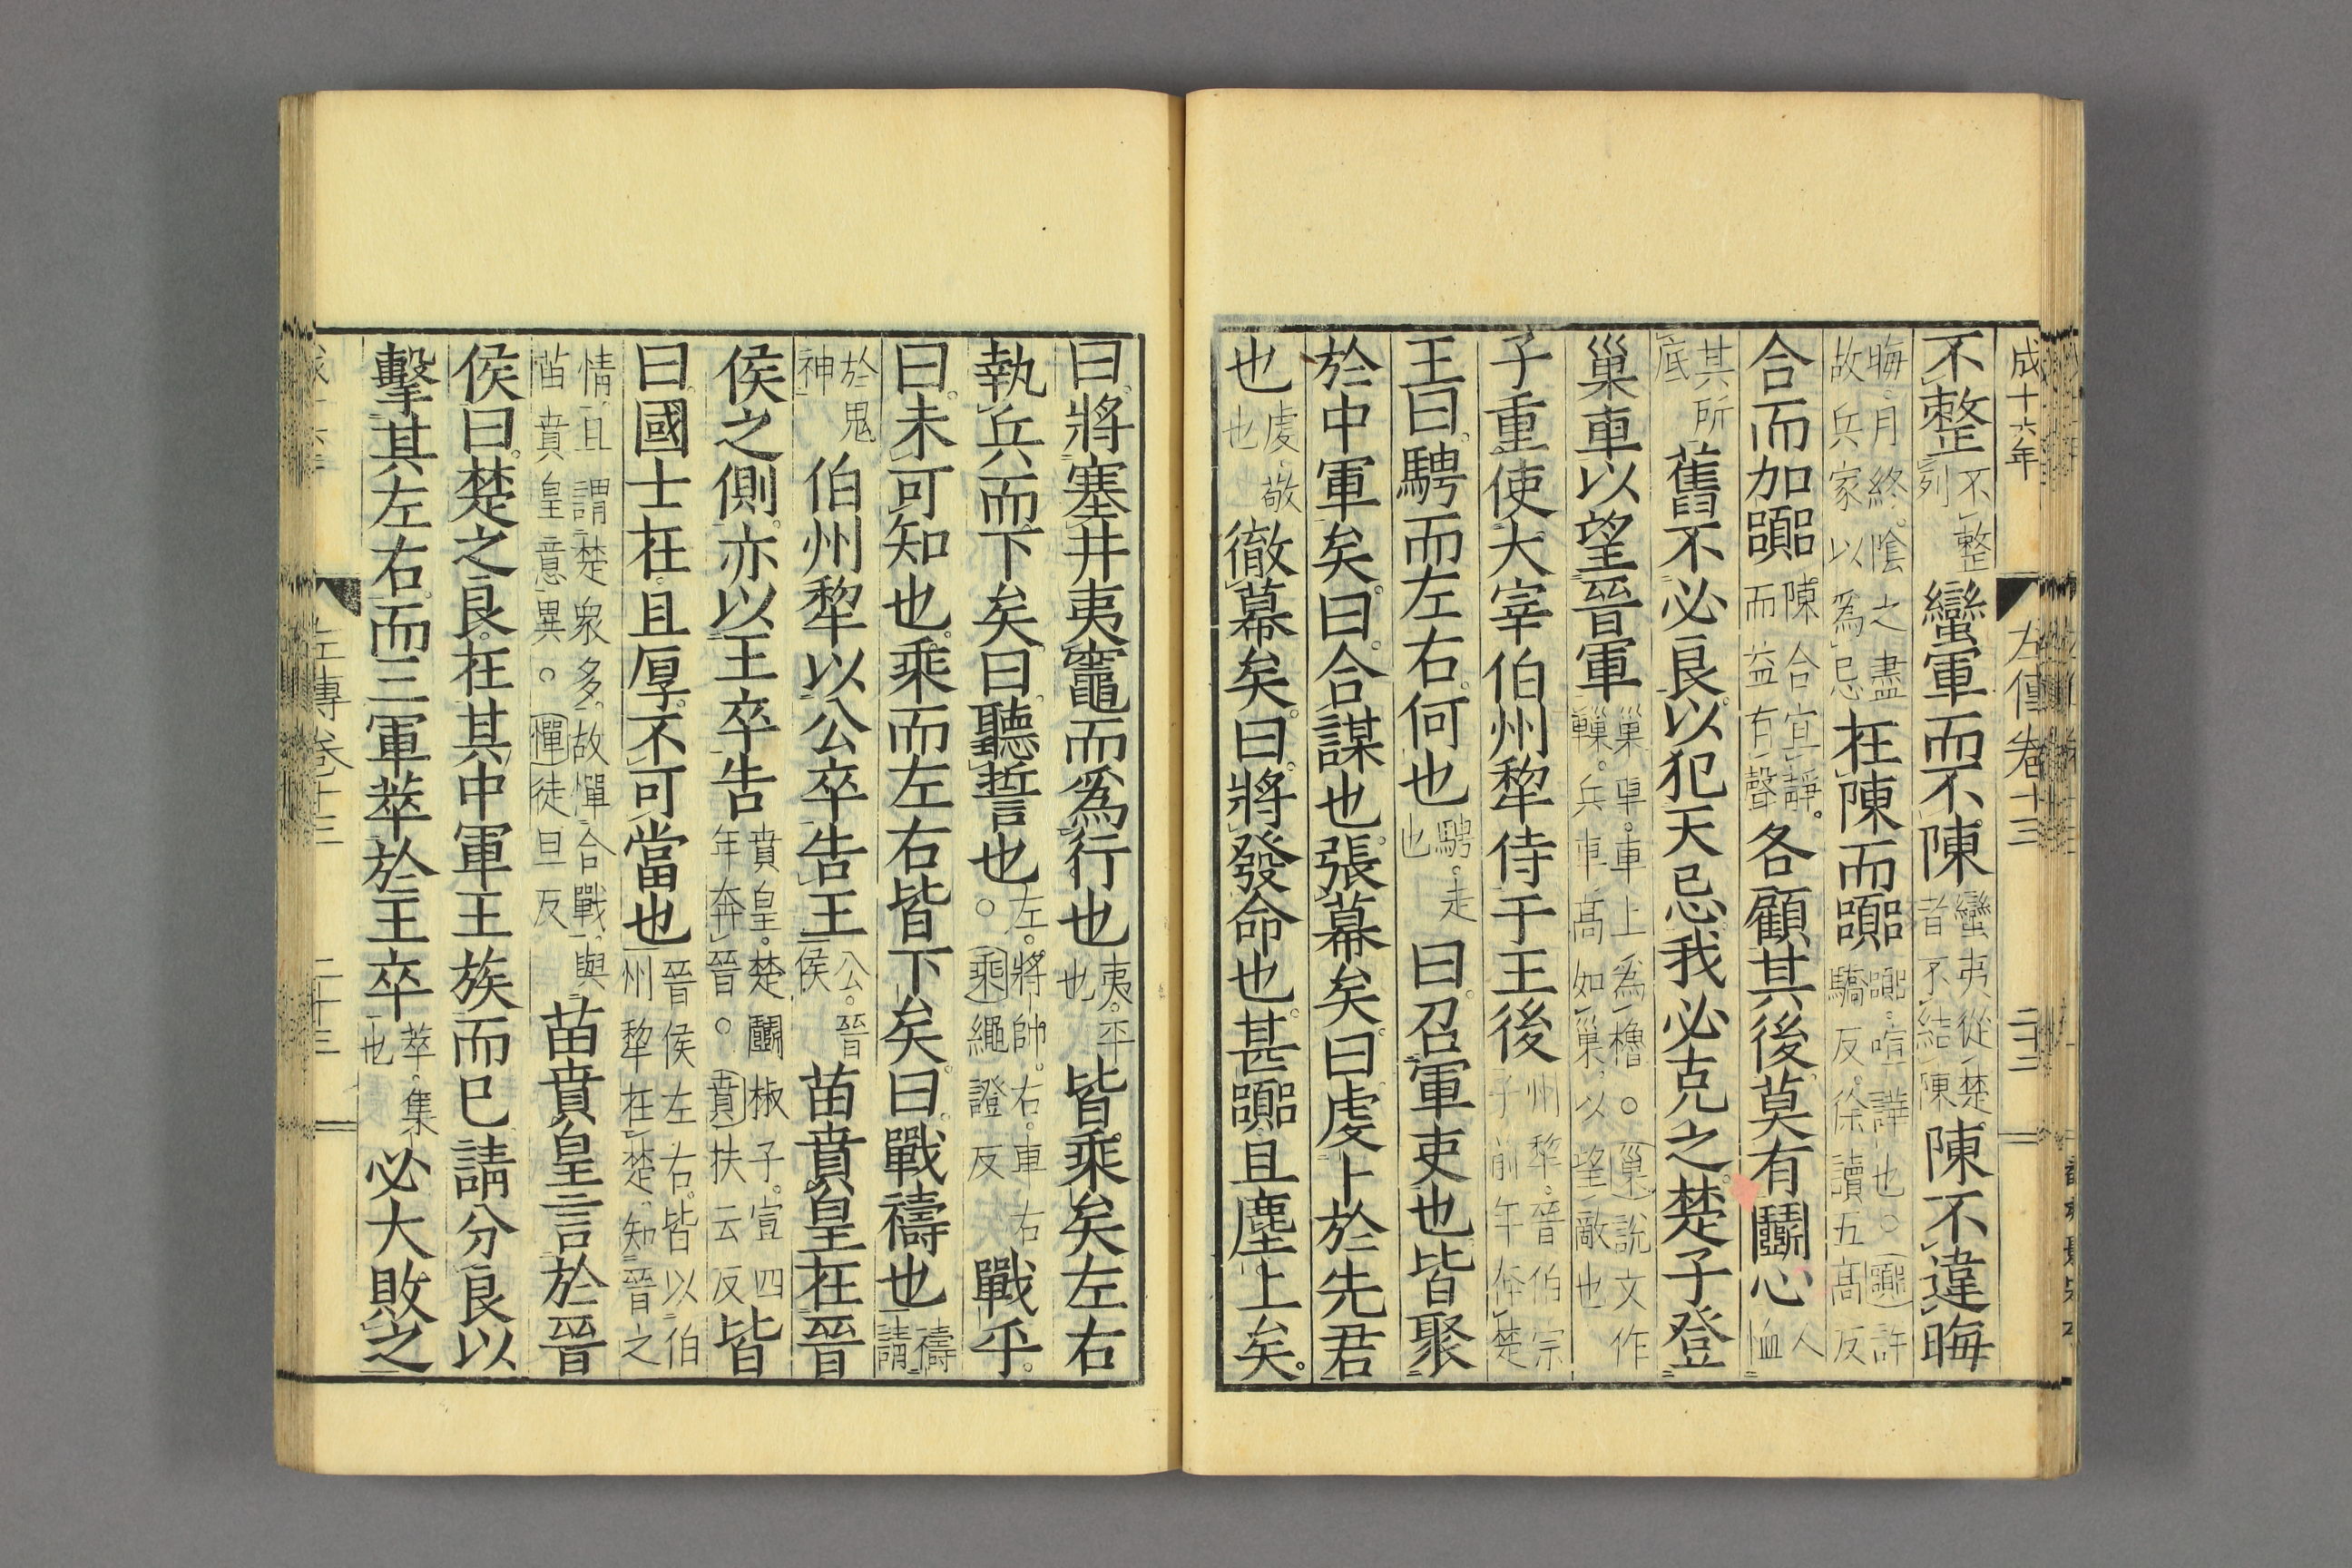 成十六年　左傳卷十三　二十二
不整不整列蠻軍而不陳蠻夷從楚者不結陳陳不違晦
晦月終陰之盡故兵家以爲忌在陳而嚻嚻喧譁也○嚻許驕反徐讀五高反
合而加嚻陳合宜靜而益有聲各顧其後莫有鬭心人恤
其所底舊不必良以犯天忌我必克之楚子登
巢車以望晉軍巢車車上爲櫓○巢說文作轈兵車高如巢以望敵也
子重使大宰伯州犂侍于王後州犂晉伯宗子前年奔楚
王曰騁而左右何也騁走也曰召軍吏也皆聚
於中軍矣曰合謀也張幕矣曰虔卜於先君
也虔敬也徹幕矣曰將發命也甚嚻且塵上矣
曰將塞井夷竈而爲行也夷平也皆乘矣左右
執兵而下矣曰聽誓也左將帥右車右○乘繩證反戰乎
曰未可知也乘而左右皆下矣曰戰禱也禱請
於鬼神伯州犂以公卒告王公晉侯苗賁皇在晉
侯之側亦以王卒告賁皇楚鬭椒子宣四年奔晉○賁扶云反皆
曰國士在且厚不可當也晉侯左右皆以伯州犂在楚知晉之
情且謂楚衆多故憚合戰與苗賁皇意異○憚徒旦反苗賁皇言於晉
侯曰楚之良在其中軍王族而巳請分良以
擊其左右而三軍萃於王卒萃集也必大敗之
左傳卷十三　二十三